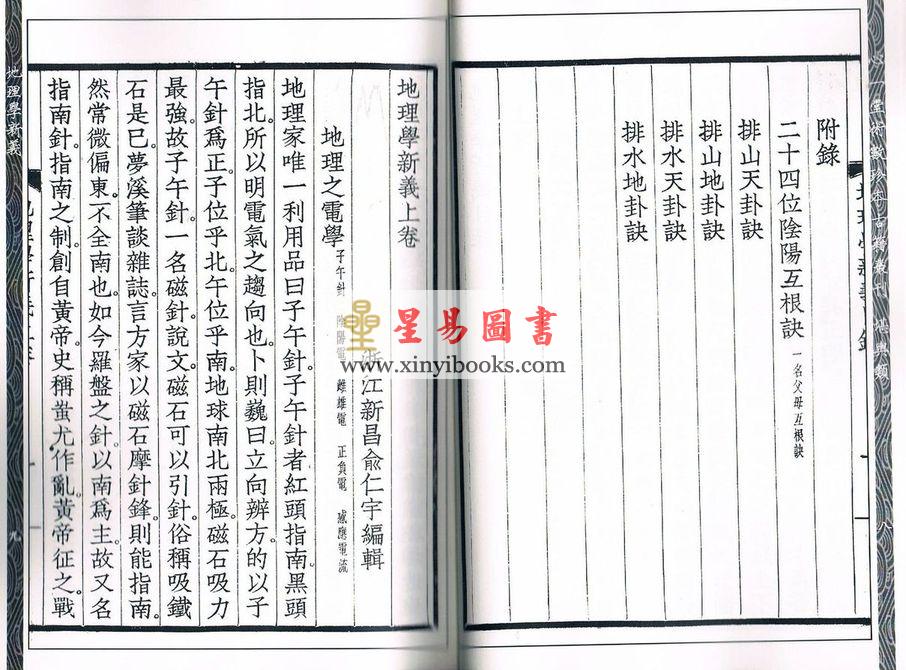 附錄
二十四位陰陽互根訣 一名父母互根訣
排山天卦訣
排山地卦訣
排水天卦訣
排水地卦訣
地理學新義上卷
浙江新昌俞仁宇編輯
地理之電學 子午針 陰陽電 雌雄電 正負電 感應電流
地理家唯一利用品曰子午針子午針者紅頭指南黑頭
指北所以明電氣之趨向也卜則巍曰立向辨方的以子
午針爲正子位乎北午位乎南地球南北兩極磁石吸力
最強故子午針一名磁針說文磁石可以引針俗稱吸鐵
石是巳夢溪筆談雜誌言方家以磁石摩針鋒則能指南
然常微偏東不全南也如今羅盤之針以南爲主故又名
指南針指南之制創自黃帝史稱蚩尤作亂黃帝征之戰
地理學新義
九
星易圖書
www.xinyibooks.com